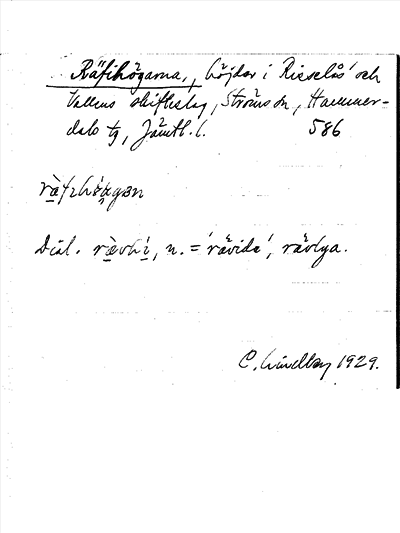 Räfihögarna, höjder i Risselås och
Vallens skifteslag, Ströms sn, Hammer-
dals tg, Jämtl. l. 586
Dial. rævhi, n. = 'rävide', rävlya.
C. Lindberg 1929.